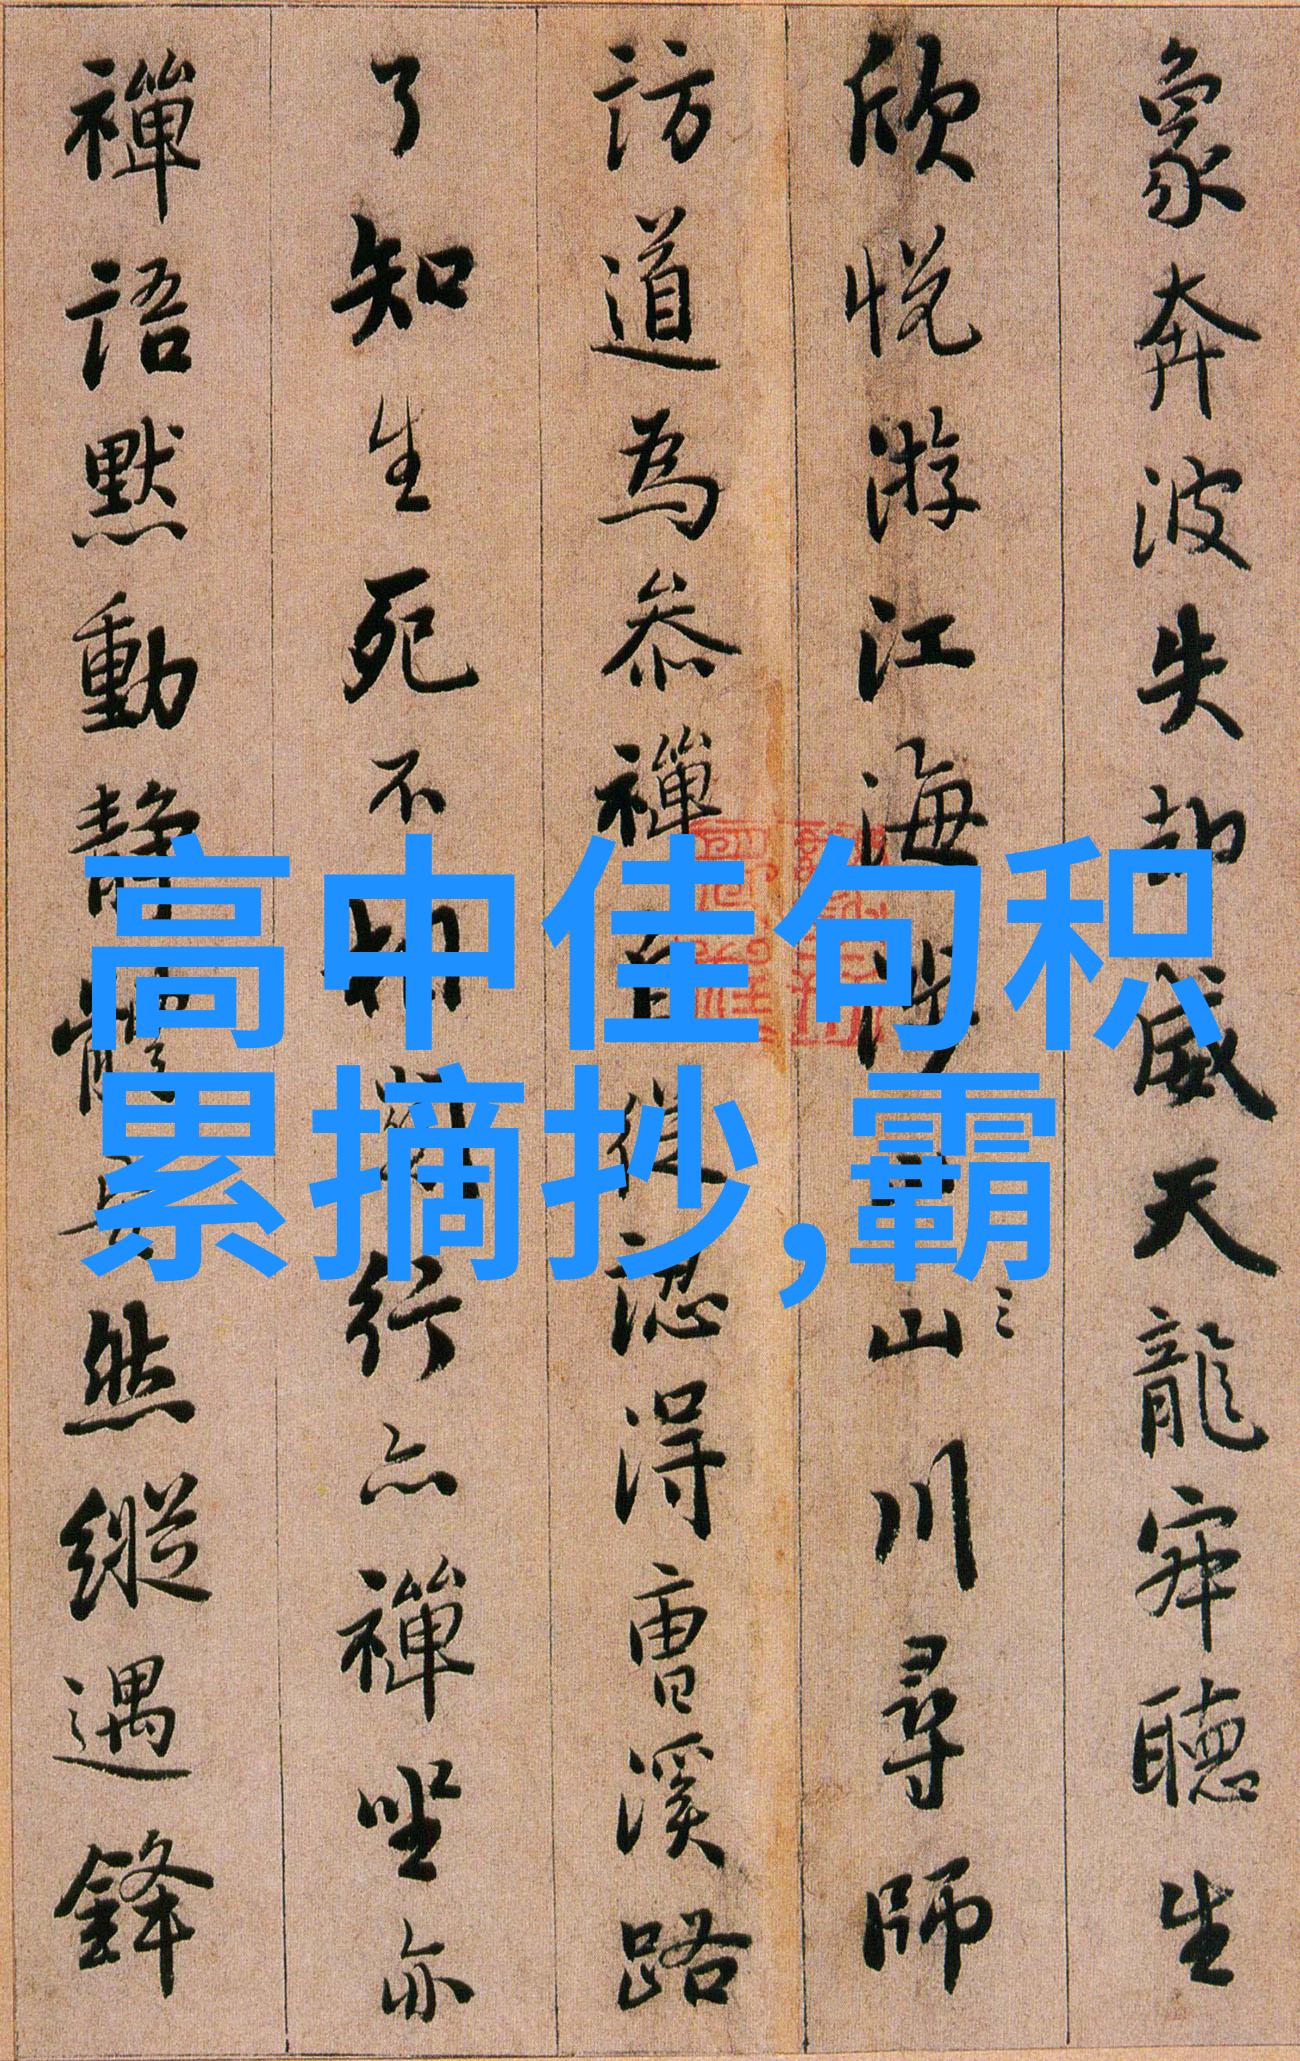 象奔波失却威天龍寂聽生
欣悅游江海涉山川尋師
訪道為叅禪自從認得曹溪路
了知生死不相關行亦禪坐亦
禪語默動靜體安然縱遇鋒
高中佳句积
累摘抄,霸